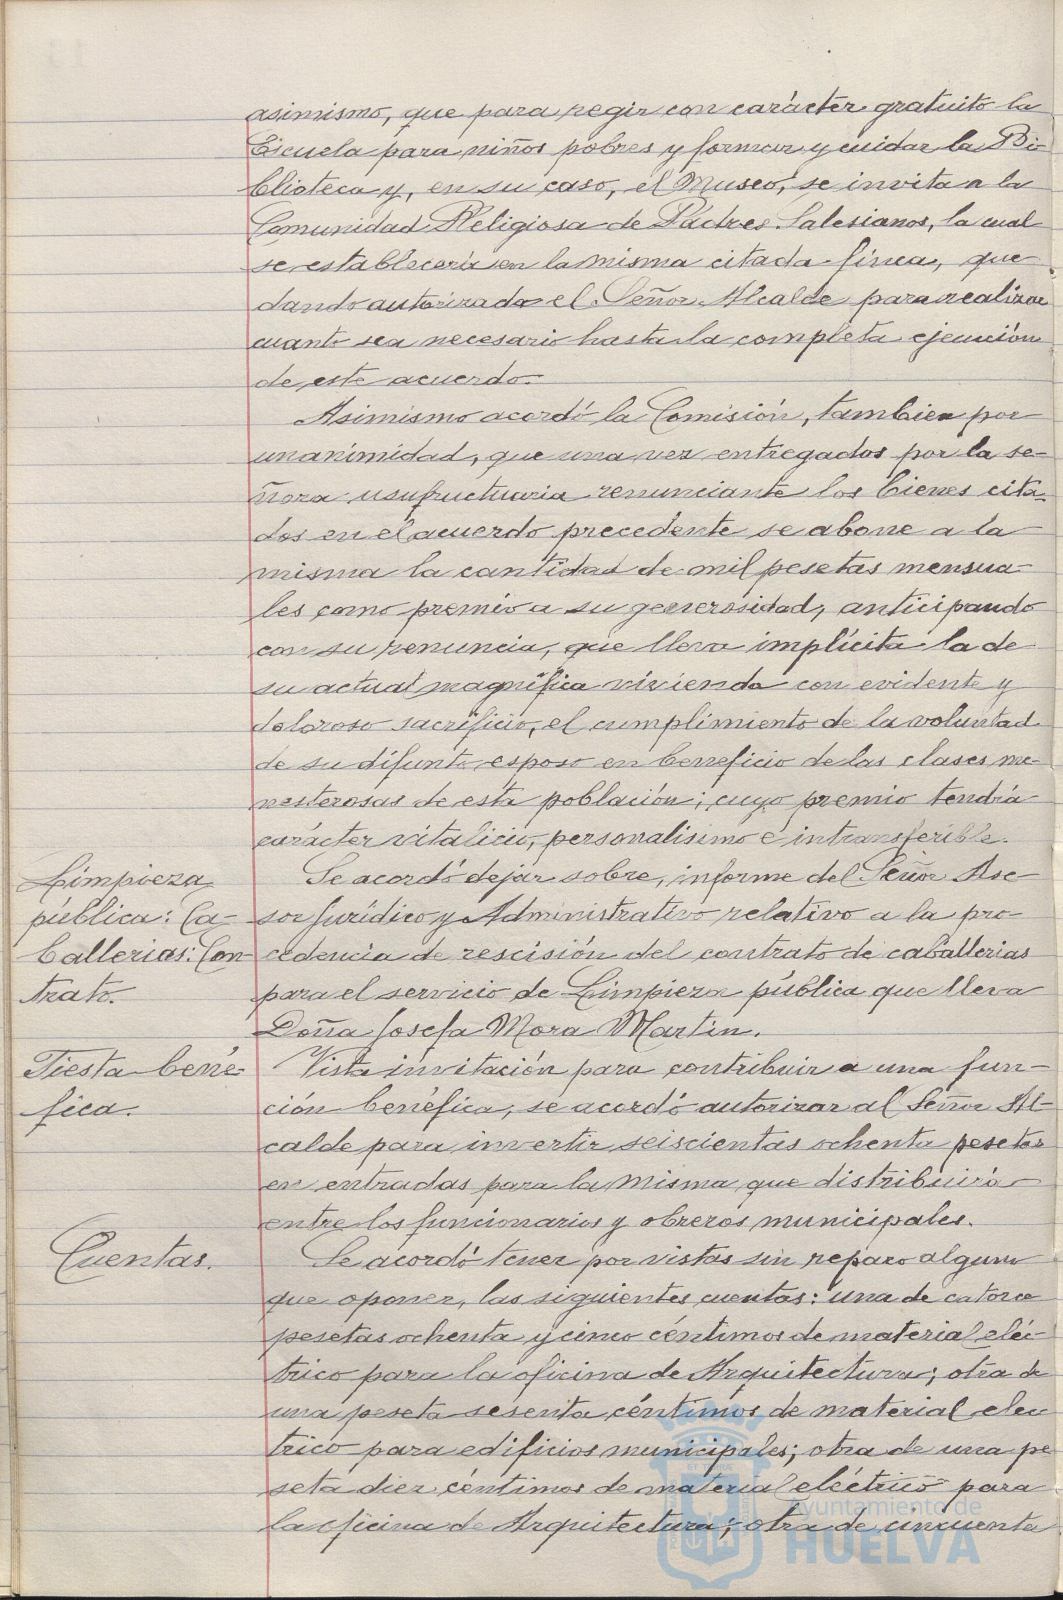 asimismo, que para regir con carácter gratuito la
Escuela para niños pobres y formar y cuidar la Bi-
blioteca y, en su caso, el Museo, se invita a la
Comunidad Religiosa de Padres Salesianos, la cual
se establecería en la misma citada finca, que-
dando autorizado el Señor Alcalde para realizar
cuanto sea necesario hasta la completa ejecución
de este acuerdo.
Asimismo acordó la Comisión, tambien por
unanimidad, que una vez entregados por la se-
ñora usufructuaria renunciante los bienes cita-
dos en el acuerdo precedente se abone a la
misma la cantidad de mil pesetas mensua-
les como premio a su generosidad, anticipando
con su renuncia, que lleva implícita la de
su actual magnífica vivienda con evidente y
doloroso sacrificio, el cumplimiento de la voluntad
de su difunto esposo en beneficio de las clases me-
nesterosas de esta población; cuyo premio tendría
carácter vitalicio, personalísimo e intransferible.
Limpieza
pública: Ca-
ballerias: Con-
trato.
Se acordó dejar sobre, informe del Señor Ase-
sor Jurídico y Administrativo relativo a la pro-
cedencia de rescisión del contrato de caballerias
para el servicio de Limpieza pública que lleva
Doña Josefa Mora Martin.
Fiesta bené-
fica.
Vista invitación para contribuir a una fun-
ción benéfica, se acordó autorizar al Señor Al-
calde para invertir seiscientas ochenta pesetas
en entradas para la misma que distribuirá
entre los funcionarios y obreros municipales.
Cuentas.
Se acordó tener por vistas sin reparo alguno
que oponer, las siguientes cuentas: una de catorce
pesetas ochenta y cinco céntimos de material eléc-
trico para la oficina de Arquitectura; otra de
una peseta sesenta céntimos de material eléc
trico para edificios municipales; otra de una pe
seta diez céntimos de material eléctrico para
la oficina de Arquitectura; otra de cincuenta
Ayuntamiento de
HUELVA